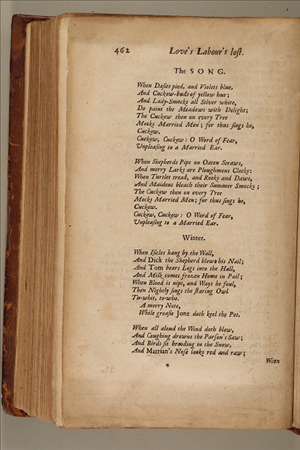 462 Love's Labour's lost.
The SONG.
When Daisies pied, and Violets blue,
And Cuckow-buds of yellow hue;
And Lady-Smocks all Silver white,
Do paint the Meadows with Delight;
The Cuckow then on every Tree
Mocks Married Men; for thus sings he,
Cuckow.
Cuckow, Cuckow: O Word of Fear,
Unpleasing to a Married Ear.
When Shepherds Pipe on Oaten Straws,
And merry Larks are Ploughmens Clocks:
When Turtles tread, and Rooks and Daws,
And Maidens bleach their Summer Smocks;
The Cuckow then on every Tree
Mocks Married Men; for thus sings he,
Cuckow.
Cuckow, Cuckow: O Word of Fear,
Unpleasing to a Married Ear.
Winter.
When Isicles hang by the Wall,
And Dick the Shepherd blows his Nail;
And Tom bears Logs into the Hall,
And Milk comes frozen Home in Pail;
When Blood is nipt, and Ways be foul,
Then Nightly sings the staring Owl
Tu-whit, to-who.
A merry Note,
While greasie Jone doth keel the Pot.
When all aloud the Wind doth blow,
And Coughing drowns the Parson's Saw;
And Birds sit brooding in the Snow,
And Marrian's Nose looks red and raw;
When